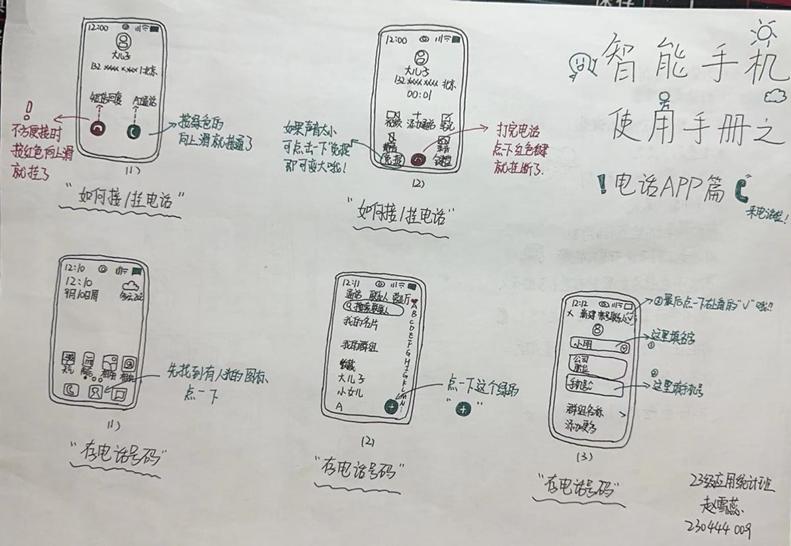 智能手机
使用手册之
!电话APP篇
来电话啦!
12:00
大儿子
132 xxxx xxxx 北京
短信回复
!
不方便接时
按红色向上滑
就挂了
按绿色的
向上滑就接通了
(1)
"如何接/挂电话"
12:00
大儿子
132 xxxx xxxx 北京
00:01
添加通话
免提
如果声音太小
可点击一下"免提"
即可变大哦!
打完电话
点下红色按键
就挂断了
(2)
"如何接/挂电话"
12:10
12:10
先找到有人物的图标
点一下
(1)
"存电话号码"
12:11
通话 联系人
搜索联系人
我的名片
我的群组
收藏
大儿子
小女儿
A
A
B
C
D
E
F
G
H
I
J
K
L
M
N
点一下这个绿的
"+"
(2)
"存电话号码"
12:12
X 新建联系人 √
小明
公司
职业
手机号
群组名称 >
添加更多
③最后点一下右上角的"√"哦!!
这里填名字
①
②
这里填手机号
(3)
"存电话号码"
23级应用统计班
赵雪蕊
230444009